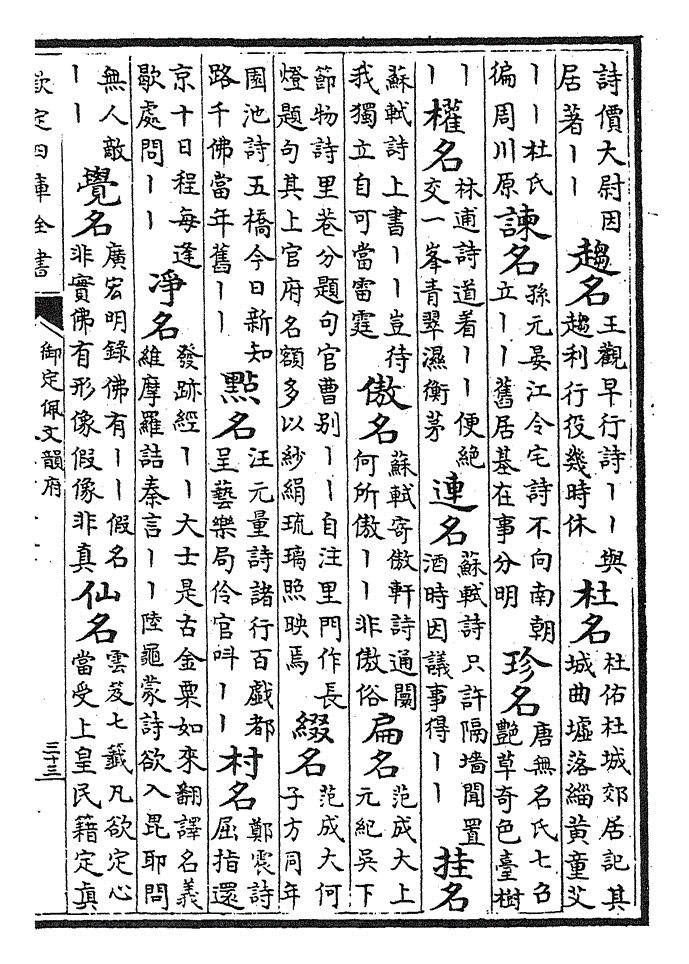 詩價大尉因
居著〡〡
趨名
王觀早行詩〡〡與
趨利行役幾時休
杜名
杜佑杜城郊居記其
城曲墟落緇黃童艾
〡〡杜氏
徧周川原
諫名
孫元晏江令宅詩不向南朝
立〡〡舊居基在事分明
珍名
唐無名氏七召
艷草奇色臺樹
〡
〡
權名
林逋詩道着〡〡便絕
交一峯青翠濕衡茅
連名
蘇軾詩只許隔墻聞置
酒時因議事得〡〡
挂名
蘇軾詩上書〡〡豈待
我獨立自可當雷霆
傲名
蘇軾寄傲軒詩通闤
何所傲〡〡非傲俗
扁名
范成大上
元紀吳下
節物詩里巷分題句官曹别〡〡自注里門作長
燈題句其上官府名額多以紗絹琉璃照映焉
綴名
范成大何
子方同年
園池詩五橋今日新知
路千佛當年舊〡〡
點名
汪元量詩諸行百戲都
呈藝樂局伶官呌〡〡
村名
鄭震詩
屈指還
京十日程每逢
歇處問〡〡
淨名
發跡經〡〡大士是古金粟如來翻譯名義
維摩羅詰秦言〡〡陸龜蒙詩欲入毘耶問
無人敵
〡〡
覺名
廣宏明錄佛有〡〡假名
非實佛有形像假像非真
仙名
雲芨七籤凡欲定心
當受上皇民籍定真
欽定四庫全書
御定佩文韻府
三十三